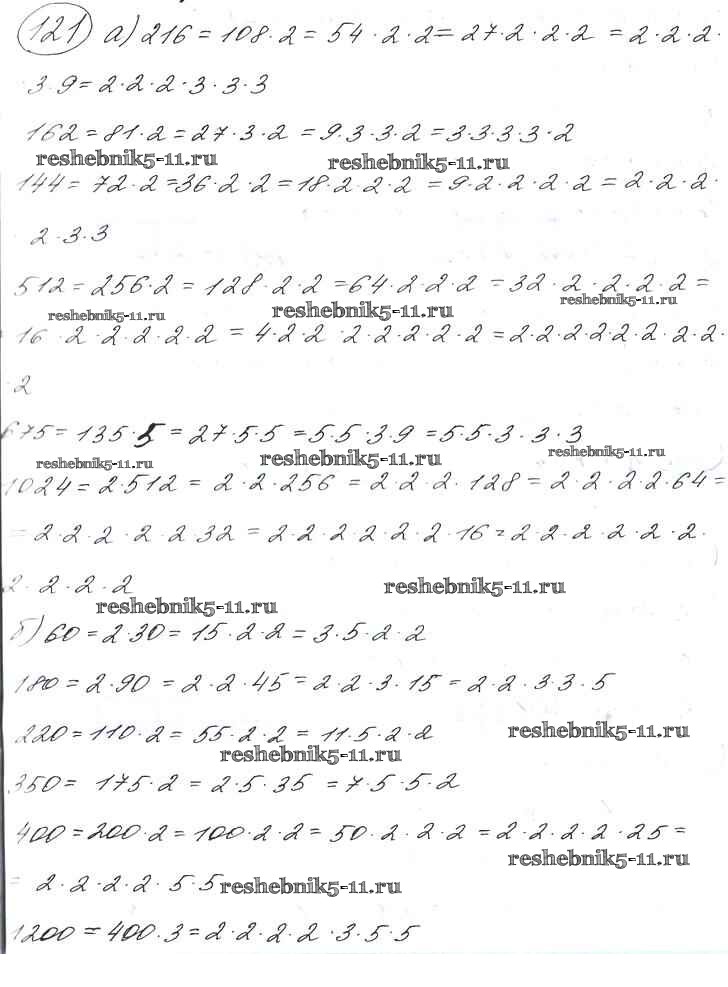 121 а) 216 = 108 · 2 = 54 · 2 · 2 = 27 · 2 · 2 · 2 = 2 · 2 · 2 ·
· 3 · 9 = 2 · 2 · 2 · 3 · 3 · 3
162 = 81 · 2 = 27 · 3 · 2 = 9 · 3 · 3 · 2 = 3 · 3 · 3 · 3 · 2
reshebnik5-11.ru reshebnik5-11.ru
144 = 72 · 2 = 36 · 2 · 2 = 18 · 2 · 2 · 2 = 9 · 2 · 2 · 2 · 2 = 2 · 2 · 2 ·
2 · 3 · 3
512 = 256 · 2 = 128 · 2 · 2 = 64 · 2 · 2 · 2 = 32 · 2 · 2 · 2 · 2 =
reshebnik5-11.ru reshebnik5-11.ru reshebnik5-11.ru
16 · 2 · 2 · 2 · 2 · 2 = 4 · 2 · 2 · 2 · 2 · 2 · 2 · 2 = 2 · 2 · 2 · 2 · 2 · 2 · 2 · 2 ·
· 2
675 = 135 · 5 = 27 · 5 · 5 = 5 · 5 · 3 · 9 = 5 · 5 · 3 · 3 · 3
reshebnik5-11.ru reshebnik5-11.ru reshebnik5-11.ru
1024 = 2 · 512 = 2 · 2 · 256 = 2 · 2 · 2 · 128 = 2 · 2 · 2 · 2 · 64 =
= 2 · 2 · 2 · 2 · 2 32 = 2 · 2 · 2 · 2 · 2 · 2 · 16 = 2 · 2 · 2 · 2 · 2 · 2 ·
2 · 2 · 2 · 2
reshebnik5-11.ru reshebnik5-11.ru
б) 60 = 2 · 30 = 15 · 2 · 2 = 3 · 5 · 2 · 2
180 = 2 · 90 = 2 · 2 · 45 = 2 · 2 · 3 · 15 = 2 · 2 · 3 · 3 · 5
220 = 110 · 2 = 55 · 2 · 2 = 11 · 5 · 2 · 2 reshebnik5-11.ru
reshebnik5-11.ru
350 = 175 · 2 = 2 · 5 · 35 = 7 · 5 · 5 · 2
400 = 200 · 2 = 100 · 2 · 2 = 50 · 2 · 2 · 2 = 2 · 2 · 2 · 2 · 25 =
reshebnik5-11.ru
= 2 · 2 · 2 · 2 · 5 · 5 reshebnik5-11.ru
1200 = 400 · 3 = 2 · 2 · 2 · 2 · 3 · 5 · 5